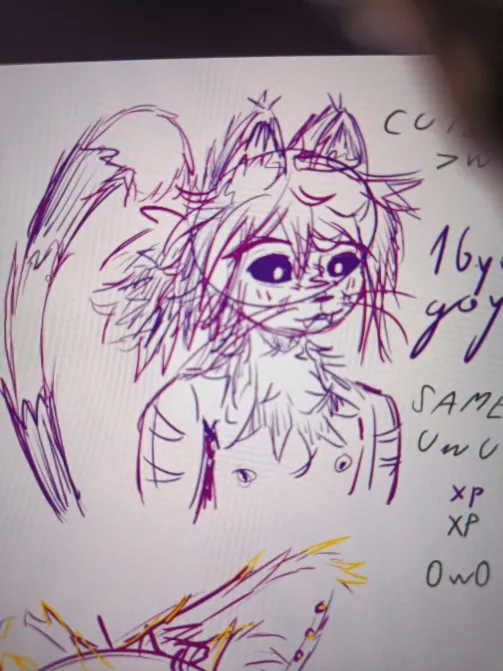 >w
16y
goy
SAME
UwU
XP
XP
OwO